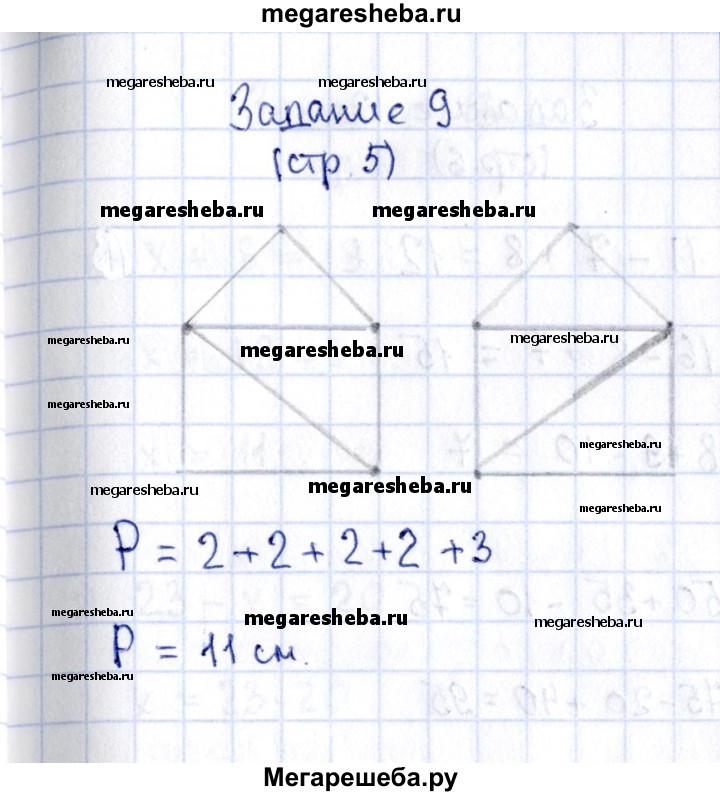 megaresheba.ru
megaresheba.ru megaresheba.ru
Задание 9
(стр. 5)
megaresheba.ru megaresheba.ru
megaresheba.ru megaresheba.ru megaresheba.ru
megaresheba.ru
megaresheba.ru
megaresheba.ru megaresheba.ru
megaresheba.ru
P = 2+2+2+2+3
megaresheba.ru megaresheba.ru megaresheba.ru
P = 11 см.
megaresheba.ru
Мегарешеба.ру